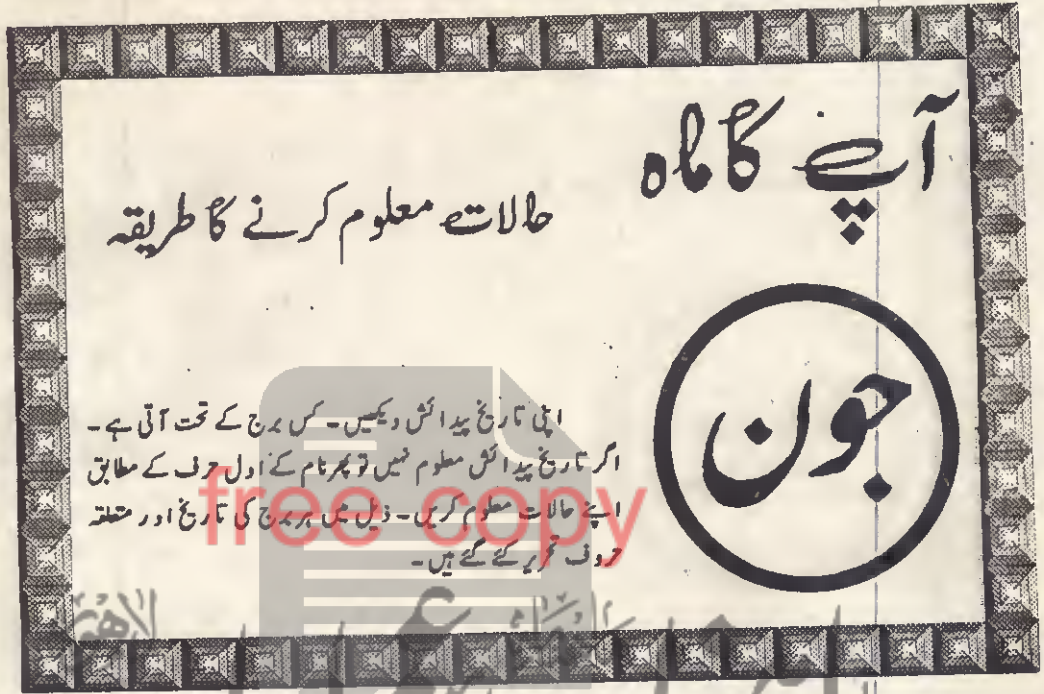 آپ کا ماہ
جون
حالات معلوم کرنے کا طریقہ
اپنی تاریخ پیدائش دیکھیں۔ کس برج کے تحت آتی ہے۔
اگر تاریخ پیدائش معلوم نہیں تو پھر نام کے اول حرف کے مطابق
اپنے حالات معلوم کریں۔ ذیل میں ہر برج کی تاریخ اور متعلقہ
حروف تحریر کئے گئے ہیں۔
free copy
لاہور